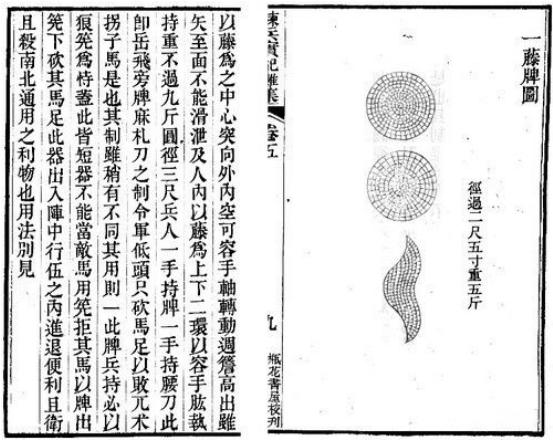 一藤牌圖
徑過二尺五寸重五斤
練兵實紀雜集
卷五
九
瓶花書屋校刋
以藤爲之中心突向外內空可容手軸轉動週簷高出雖
矢至面不能滑泄及人內以藤爲上下二環以容手肱執
持重不過九斤圓徑三尺兵人一手持牌一手持腰刀此
卽岳飛旁牌麻札刀之制令軍低頭只砍馬足以敗兀术
拐子馬是也其制雖稍有不同其用則一此牌兵持必以
狼筅爲恃蓋此皆短器不能當敵馬用筅拒其馬以牌出
筅下砍其馬足此器出入陣中行伍之內進退便利且衛
且殺南北通用之利物也用法別見